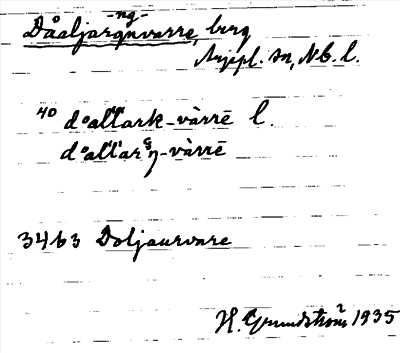 -ng-
Dåaljarqnvarre, berg
Arjepl. sn, Nb. l.
40 dᵒal'l'ark-vàrrē l.
dᵒal'l'arᶝŋ-vàrrē
3463 Doljaurvare
H. Grundström 1935